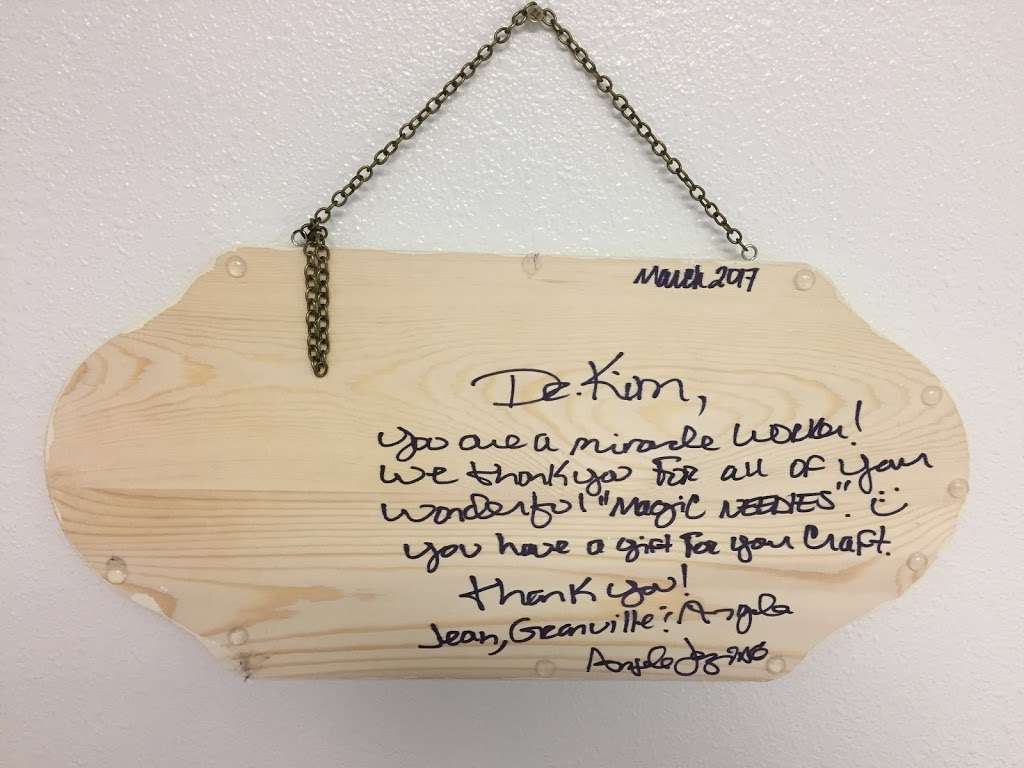 March 2017
Dr. Kim,
You are a miracle worker!
We thank you for all of your
wonderful "Magic NEEDLES". :)
You have a gift for your craft.
Thank you!
Jean, Granville & Angela
Angela